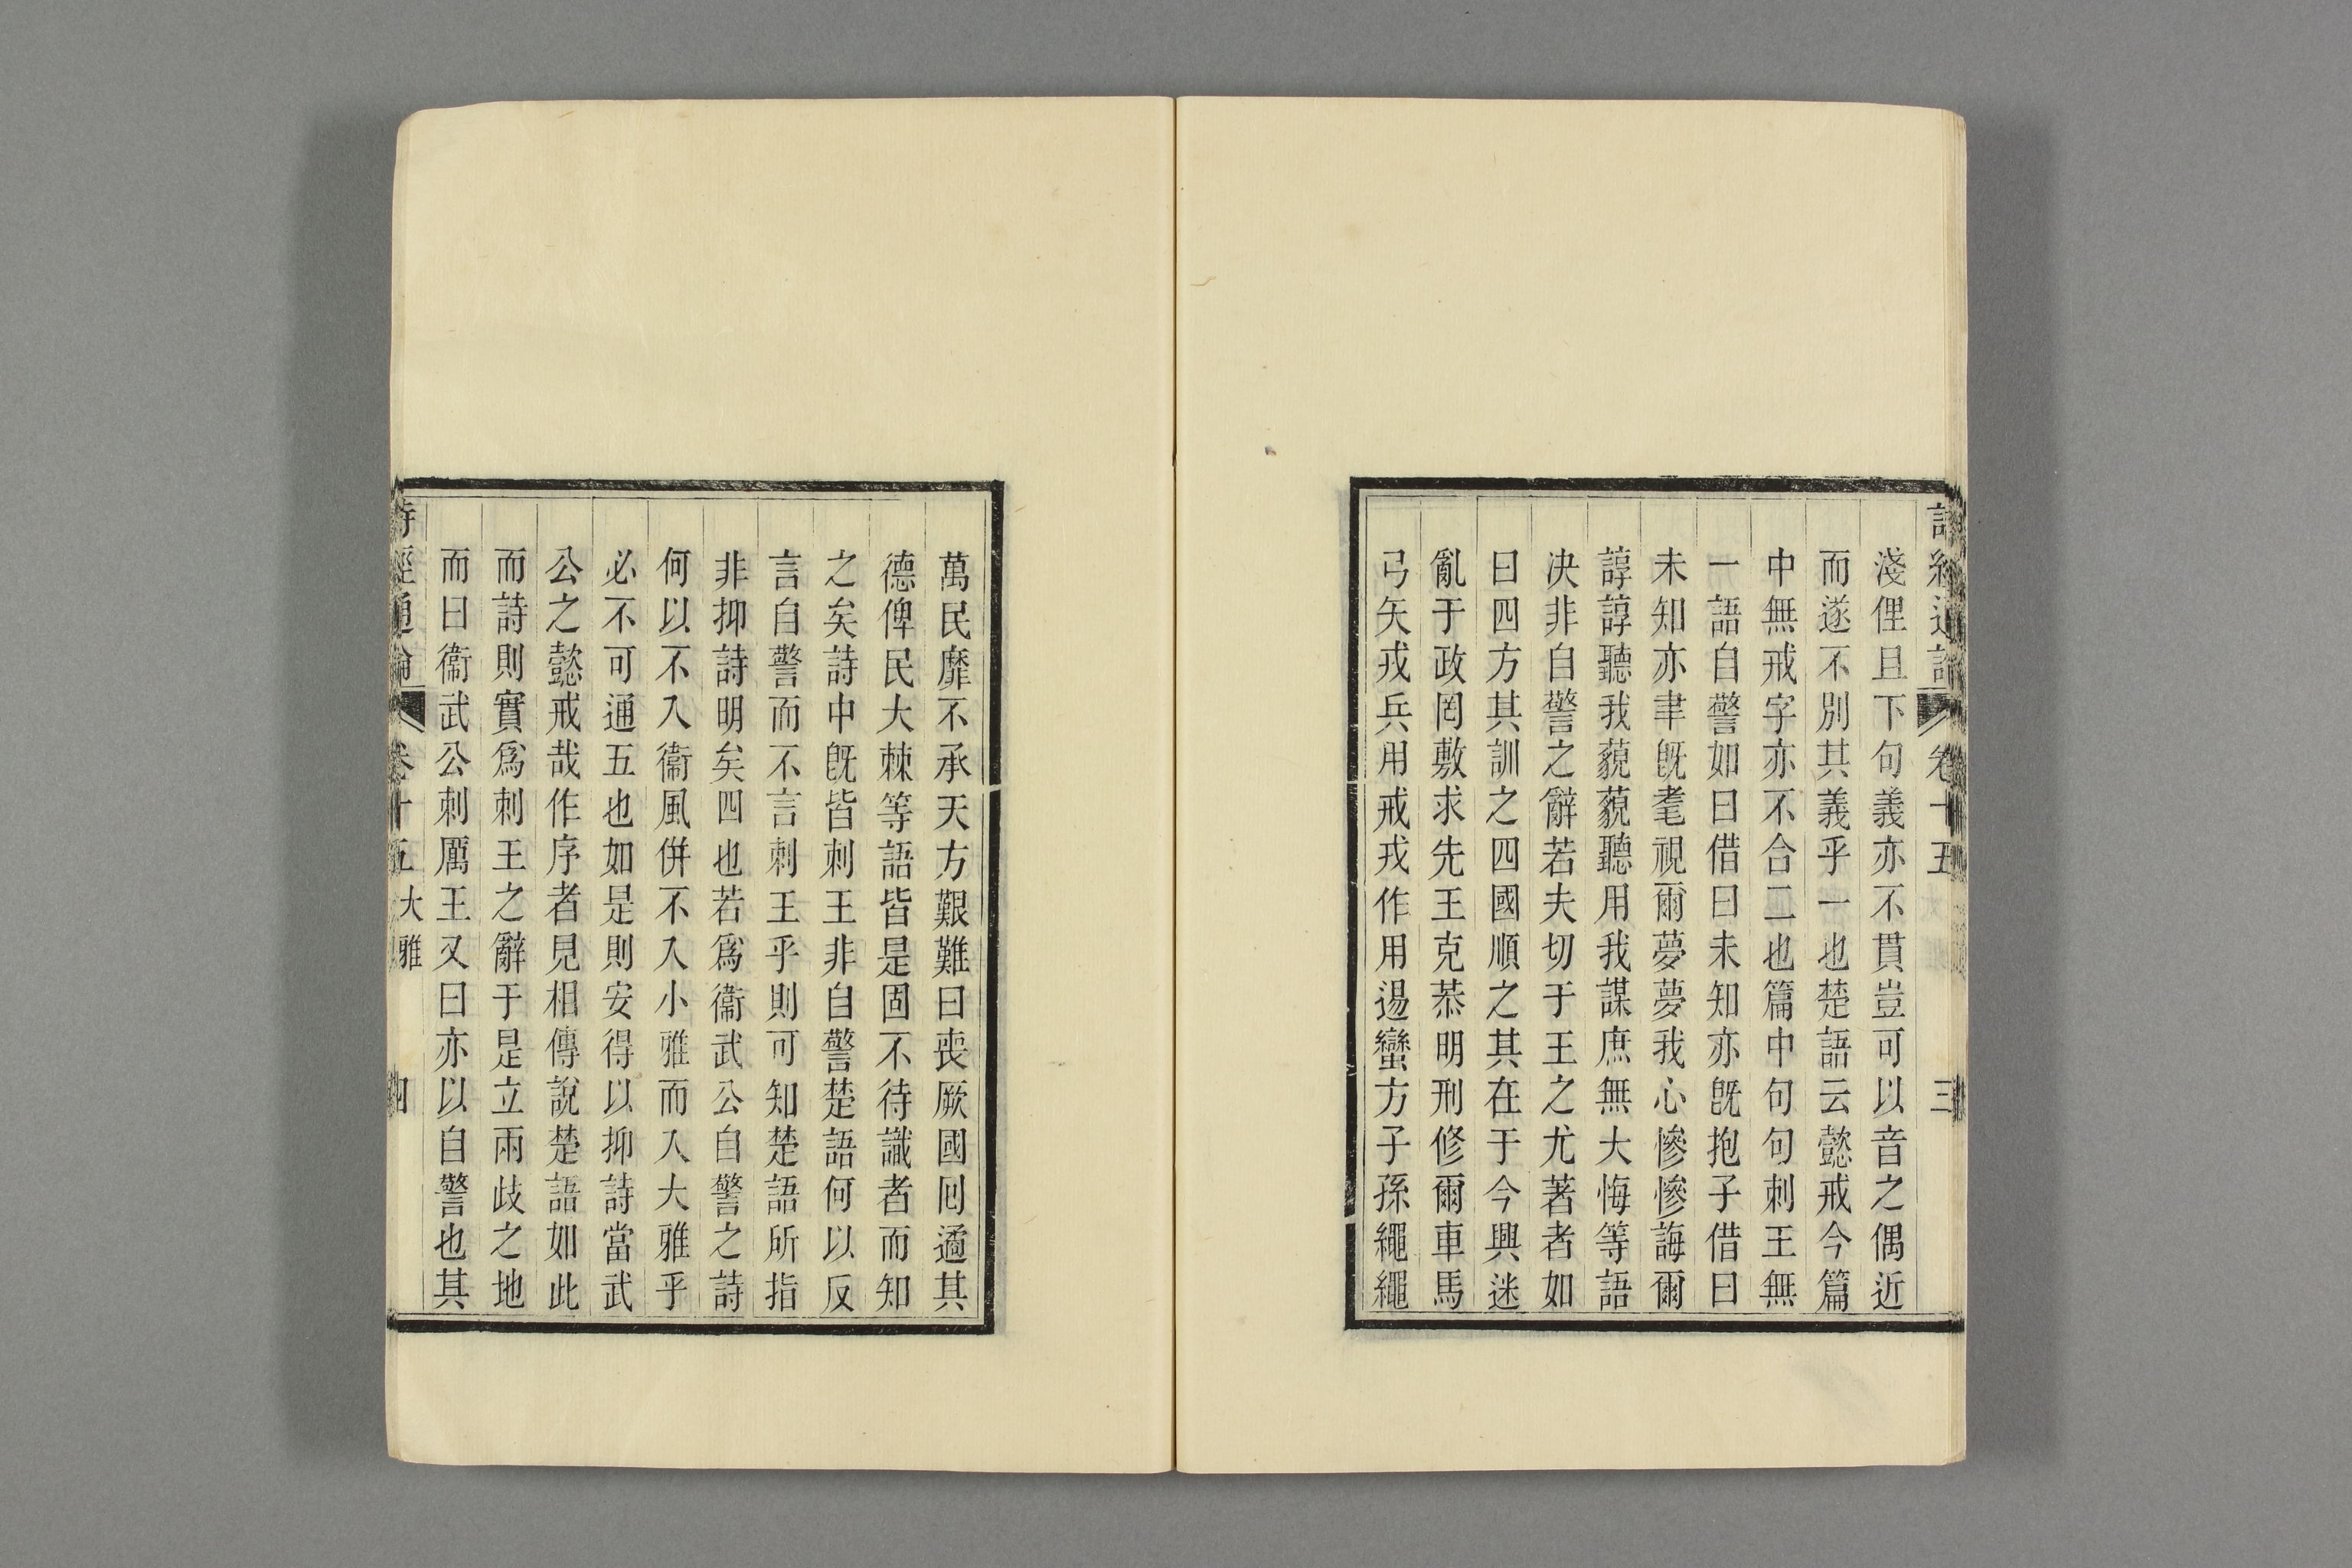 詩經通論 卷十五 三
淺俚且下句義亦不貫豈可以音之偶近
而遂不別其義乎一也楚語云懿戒今篇
中無戒字亦不合二也篇中句句刺王無
一語自警如曰借曰未知亦旣抱子借曰
未知亦聿旣耄視爾夢夢我心慘慘誨爾
諄諄聽我藐藐聽用我謀庶無大悔等語
决非自警之辭若夫切于王之尤著者如
曰四方其訓之四國順之其在于今興迷
亂于政罔敷求先王克恭明刑修爾車馬
弓矢戎兵用戒戎作用逷蠻方子孫繩繩
萬民靡不承天方艱難曰喪厥國囘遹其
德俾民大棘等語皆是固不待識者而知
之矣詩中旣皆刺王非自警楚語何以反
言自警而不言刺王乎則可知楚語所指
非抑詩明矣四也若爲衞武公自警之詩
何以不入衞風併不入小雅而入大雅乎
必不可通五也如是則安得以抑詩當武
公之懿戒哉作序者見相傳說楚語如此
而詩則實爲刺王之辭于是立兩歧之地
而曰衞武公刺厲王又曰亦以自警也其
詩經通論 卷十五 大雅 四